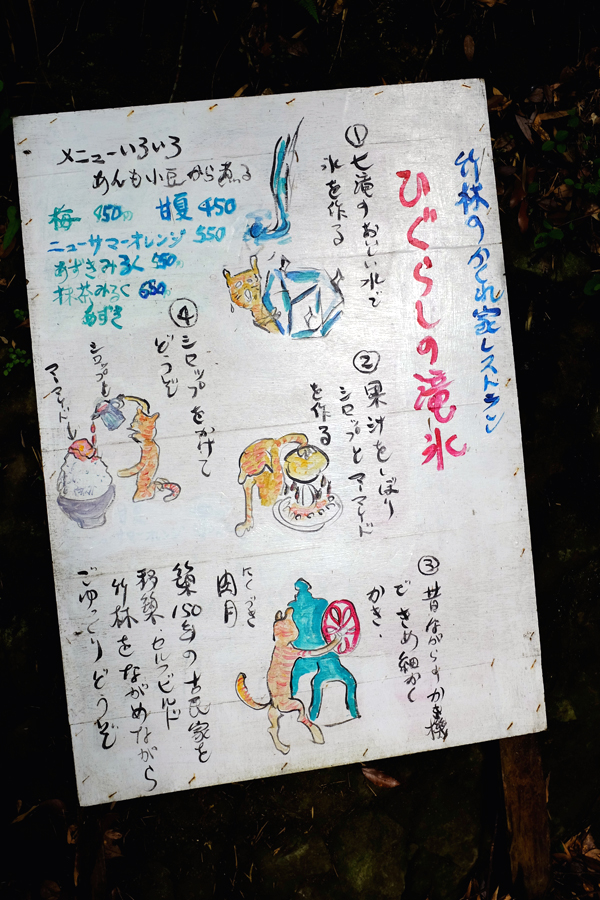 竹林のかくれ家レストラン
ひぐらしの滝氷
①七滝のおいしい水で
氷を作る
②果汁をしぼり
シロップとマーマレード
を作る
③昔ながらのかき機
できめ細かく
かき、
④シロップをかけて
どうぞ
シロップも
マーマレードも
メニューいろいろ
あんも小豆から煮る
梅 450円 甘夏 450
ニューサマーオレンジ 550
あずきみるく 550
抹茶みるく 650
あずき
にくづき
肉月
築150年の古民家を
移築 セルフビルド
竹林をながめながら
ごゆっくりどうぞ